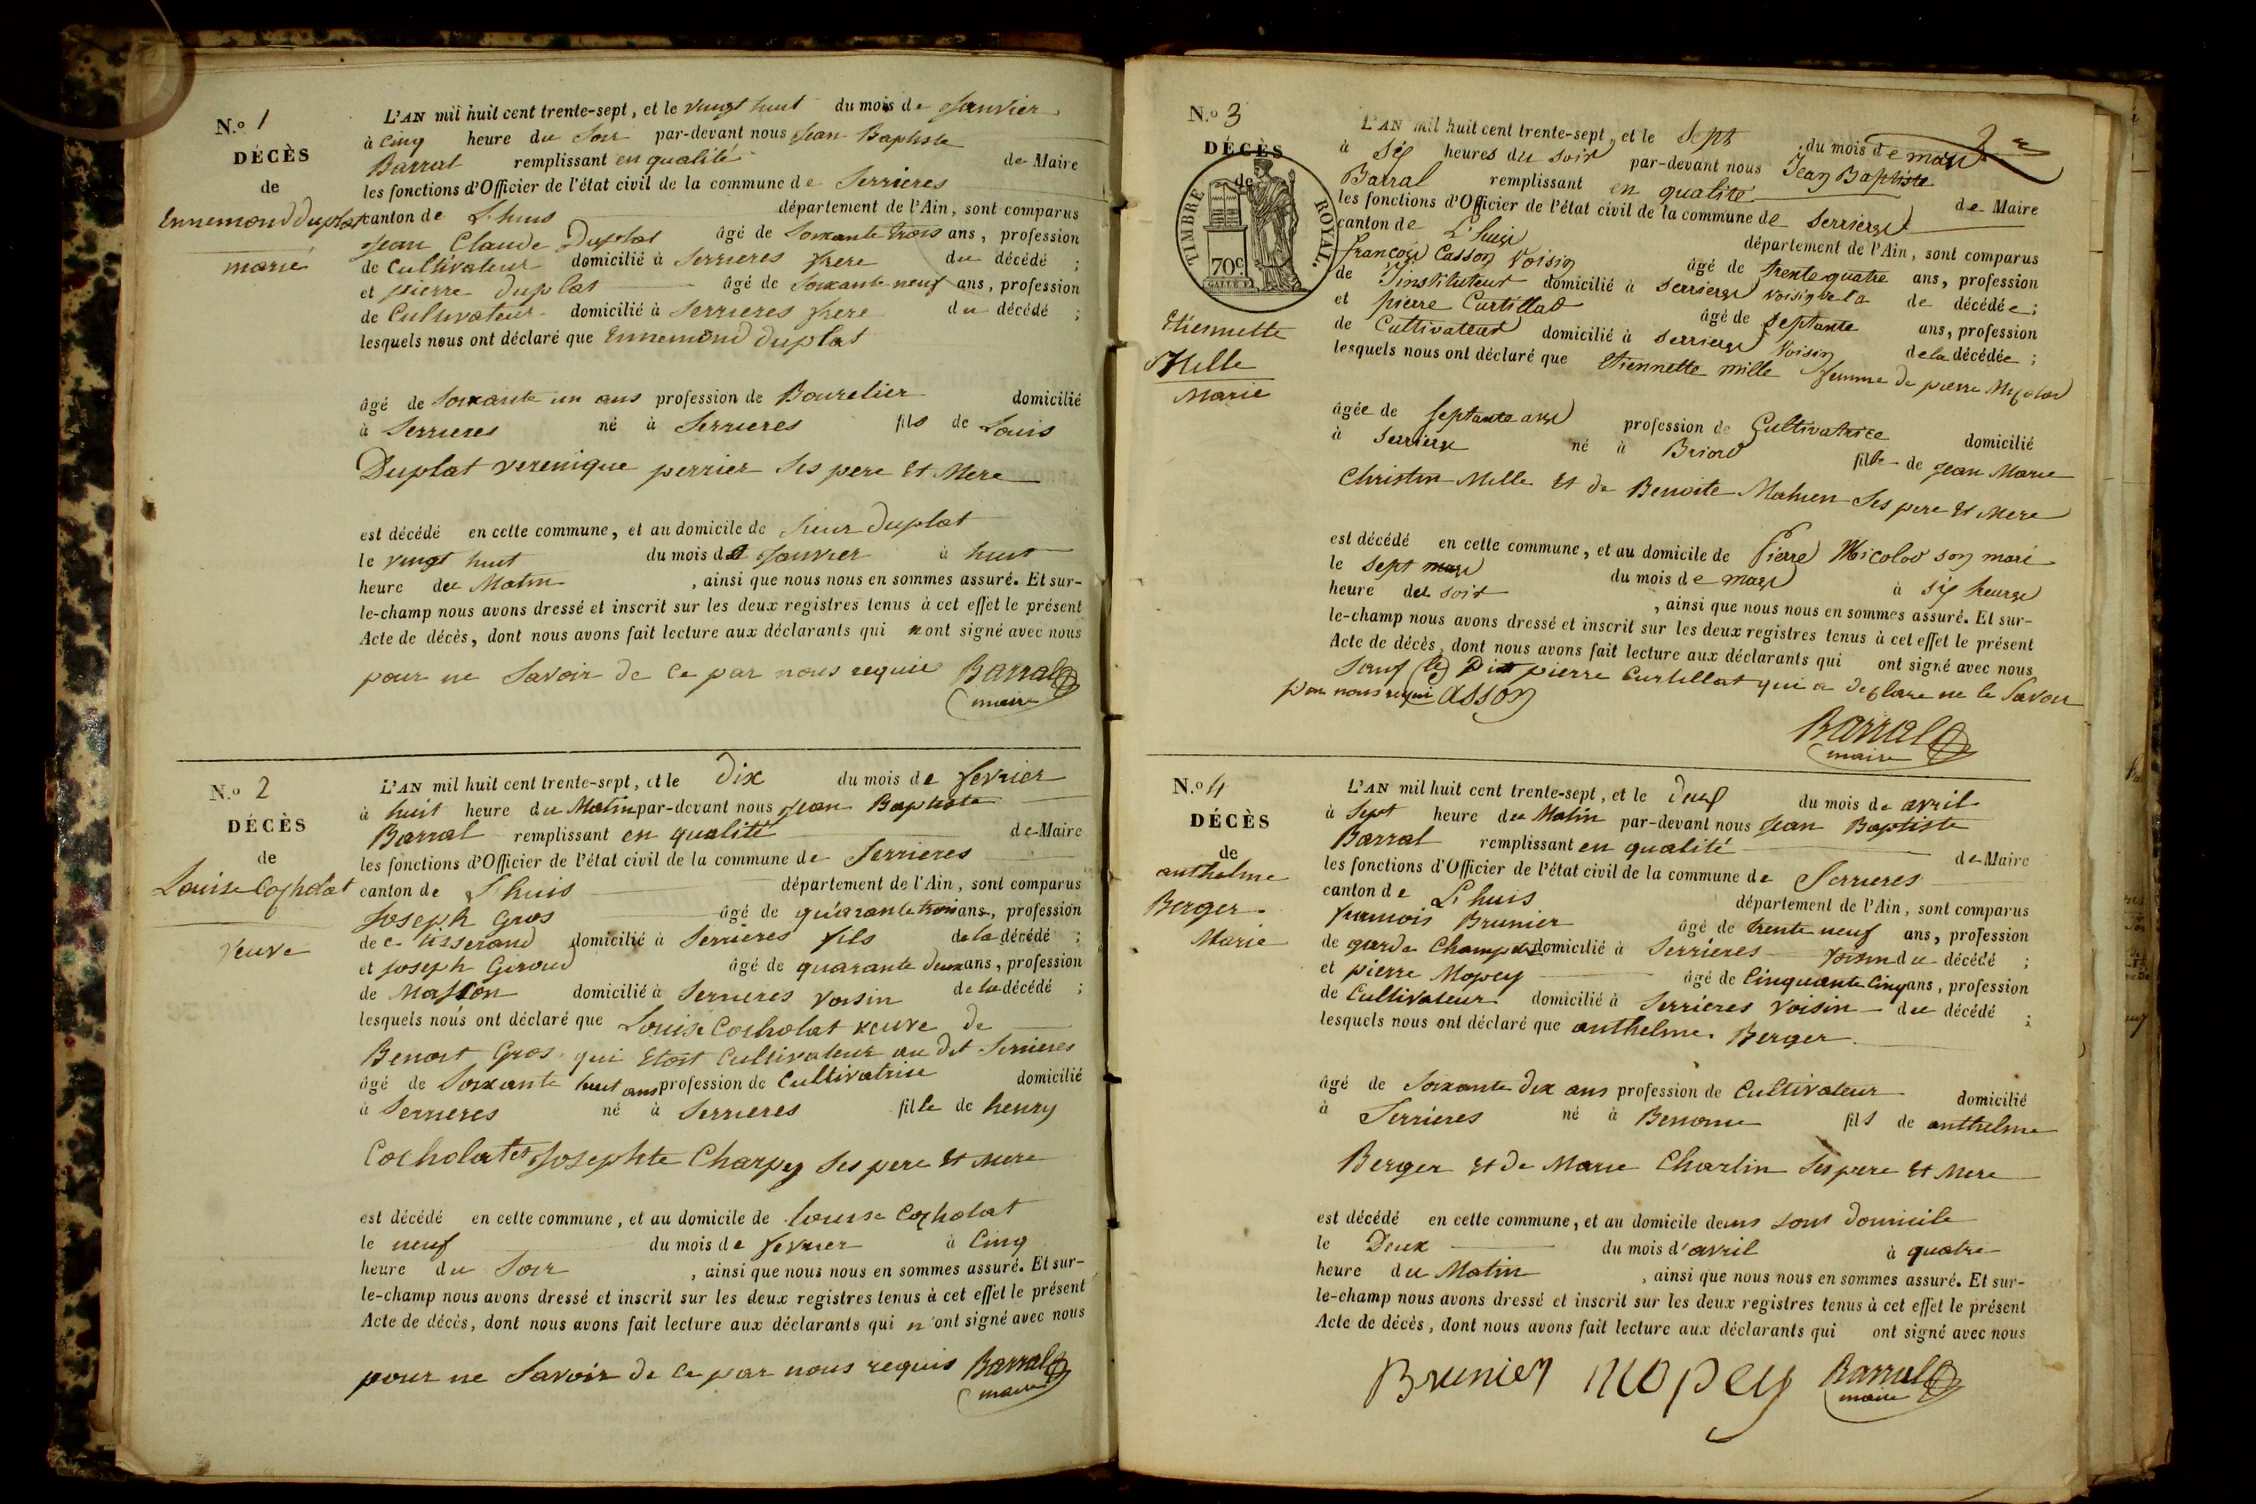 N.º 1
DÉCÈS
de
Ennemond duplat
marié
L'AN mil huit cent trente-sept, et le vingt huit du mois de Janvier
à cinq heure du Soir par-devant nous Jean Baptiste
Barral remplissant en qualité de Maire
les fonctions d'Officier de l'état civil de la commune de Serrieres
canton de L'huis département de l'Ain, sont comparus
Jean Claude Duplat âgé de Soixante trois ans, profession
de Cultivateur domicilié à Serrieres frere du décédé ;
et pierre duplat âgé de Soixante neuf ans, profession
de Cultivateur domicilié à Serrieres frere du décédé ;
lesquels nous ont déclaré que Ennemond duplat
âgé de Soixante un ans profession de Bourelier domicilié
à Serrieres né à Serrieres fils de Louis
Duplat verenique perrier Ses pere Et Mere
est décédé en cette commune, et au domicile de Sieur duplat
le vingt huit du mois de Janvier à huit
heure du Matin , ainsi que nous nous en sommes assuré. Et sur-
le-champ nous avons dressé et inscrit sur les deux registres tenus à cet effet le présent
Acte de décès, dont nous avons fait lecture aux déclarants qui n ont signé avec nous
pour ne Savoir de Ce par nous requis Barral
maire
N.º 2
DÉCÈS
de
Louise Cocholat
veuve
L'AN mil huit cent trente-sept, et le Dix du mois de fevrier
à huit heure du Matin par-devant nous Jean Baptiste
Barral remplissant en qualité de Maire
les fonctions d'Officier de l'état civil de la commune de Serrieres
canton de L'huis département de l'Ain, sont comparus
Joseph Gros âgé de quarante trois ans, profession
de tisserand domicilié à Serrieres fils de la décédé ;
et Joseph Giroud âgé de quarante deux ans, profession
de Masson domicilié à Serrieres voisin de la décédé ;
lesquels nous ont déclaré que Louise Cocholat veuve de
Benoit Gros qui Etoit Cultivateur au dit Serrieres
âgé de Soixante huit ans profession de Cultivatrise domicilié
à Serrieres né à Serrieres fille de henry
Cocholat et Josephte Charpey Ses pere Et Mere
est décédé en cette commune, et au domicile de Louise Cocholat
le neuf du mois de fevrier à Cinq
heure du Soir , ainsi que nous nous en sommes assuré. Et sur-
le-champ nous avons dressé et inscrit sur les deux registres tenus à cet effet le présent
Acte de décès, dont nous avons fait lecture aux déclarants qui n'ont signé avec nous
pour ne Savoir de Ce par nous requis Barral
maire
2
N.º 3
DÉCÈS
de
TIMBRE ROYAL.
70c
Etiennette
Mille
Marié
L'AN mil huit cent trente-sept, et le Sept du mois de mars
à Six heures du soir par-devant nous Jean Baptiste
Barral remplissant en qualité de Maire
les fonctions d'Officier de l'état civil de la commune de Serrieres
canton de L'huis département de l'Ain, sont comparus
françois Casson Voisin âgé de trente quatre ans, profession
de l'instituteur domicilié à Serrieres voisin de la de décédée ;
et pierre Curtillat âgé de septante ans, profession
de Cultivateur domicilié à Serrieres Voisin de la décédée ;
lesquels nous ont déclaré que Etiennette mille femme de pierre Micolod
âgée de septante ans profession de Cultivatrice domicilié
à Serrieres né à Briord fille de Jean Marie
Christin Mille Et de Benoite Mahien Ses pere Et Mere
est décédé en cette commune, et au domicile de Pierre Micolod son mari
le sept mars du mois de mars à six heures
heure du soir , ainsi que nous nous en sommes assuré. Et sur-
le-champ nous avons dressé et inscrit sur les deux registres tenus à cet effet le présent
Acte de décès, dont nous avons fait lecture aux déclarants qui ont signé avec nous
Sauf le Dit pierre Curtillat qui a declare ne le Savoir
par nous requi Casson
Barral
maire
N.º 4
DÉCÈS
de
anthelme
Berger
Marié
L'AN mil huit cent trente-sept, et le deux du mois de avril
à Sept heure du Matin par-devant nous Jean Baptiste
Barral remplissant en qualité de Maire
les fonctions d'Officier de l'état civil de la commune de Serrieres
canton de L'huis département de l'Ain, sont comparus
francois Brunier âgé de trente neuf ans, profession
de garde Champetre domicilié à Serrieres voisin du décédé ;
et pierre Mopey âgé de Cinquante Cinq ans, profession
de Cultivateur domicilié à Serrieres voisin du décédé ;
lesquels nous ont déclaré que anthelme Berger
âgé de Soixante dix ans profession de Cultivateur domicilié
à Serrieres né à Benonce fils de anthelme
Berger Et de Marie Charlin Ses pere Et Mere
est décédé en cette commune, et au domicile dens sont domicile
le Deux du mois d'avril à quatre
heure du Matin , ainsi que nous nous en sommes assuré. Et sur-
le-champ nous avons dressé et inscrit sur les deux registres tenus à cet effet le présent
Acte de décès, dont nous avons fait lecture aux déclarants qui ont signé avec nous
Brunier Mopey Barral
maire